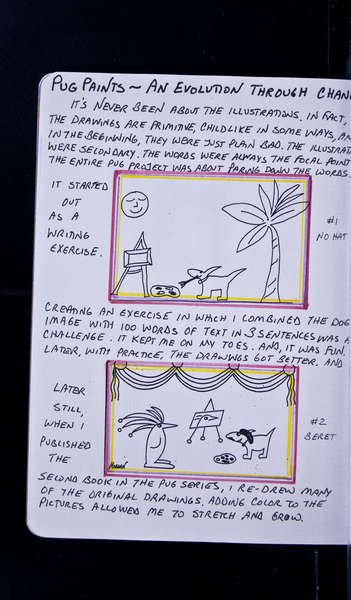 PUG PAINTS ~ AN EVOLUTION THROUGH
IT'S NEVER BEEN ABOUT THE ILLUSTRATIONS. IN FACT,
THE DRAWINGS ARE PRIMITIVE, CHILDLIKE IN SOME WAYS,
IN THE BEGINNING, THEY WERE JUST PLAIN BAD. THE
WERE SECONDARY. THE WORDS WERE ALWAYS THE FOCAL POINT
THE ENTIRE PUG PROJECT WAS ABOUT PARING DOWN THE WORDS.
IT STARTED
OUT
AS A
WRITING
EXERCISE.
#1
NO HAT
CREATING AN EXERCISE IN WHICH I COMBINED THE DOG
IMAGE WITH 100 WORDS OF TEXT IN 3 SENTENCES WAS A
CHALLENGE. IT KEPT ME ON MY TOES. AND, IT WAS FUN.
LATER, WITH PRACTICE, THE DRAWINGS GOT BETTER. AND
LATER
STILL,
WHEN I
PUBLISHED
THE
#2
BERET
SECOND BOOK IN THE PUG SERIES, I RE-DREW MANY
OF THE ORIGINAL DRAWINGS. ADDING COLOR TO THE
PICTURES ALLOWED ME TO STRETCH AND GROW.